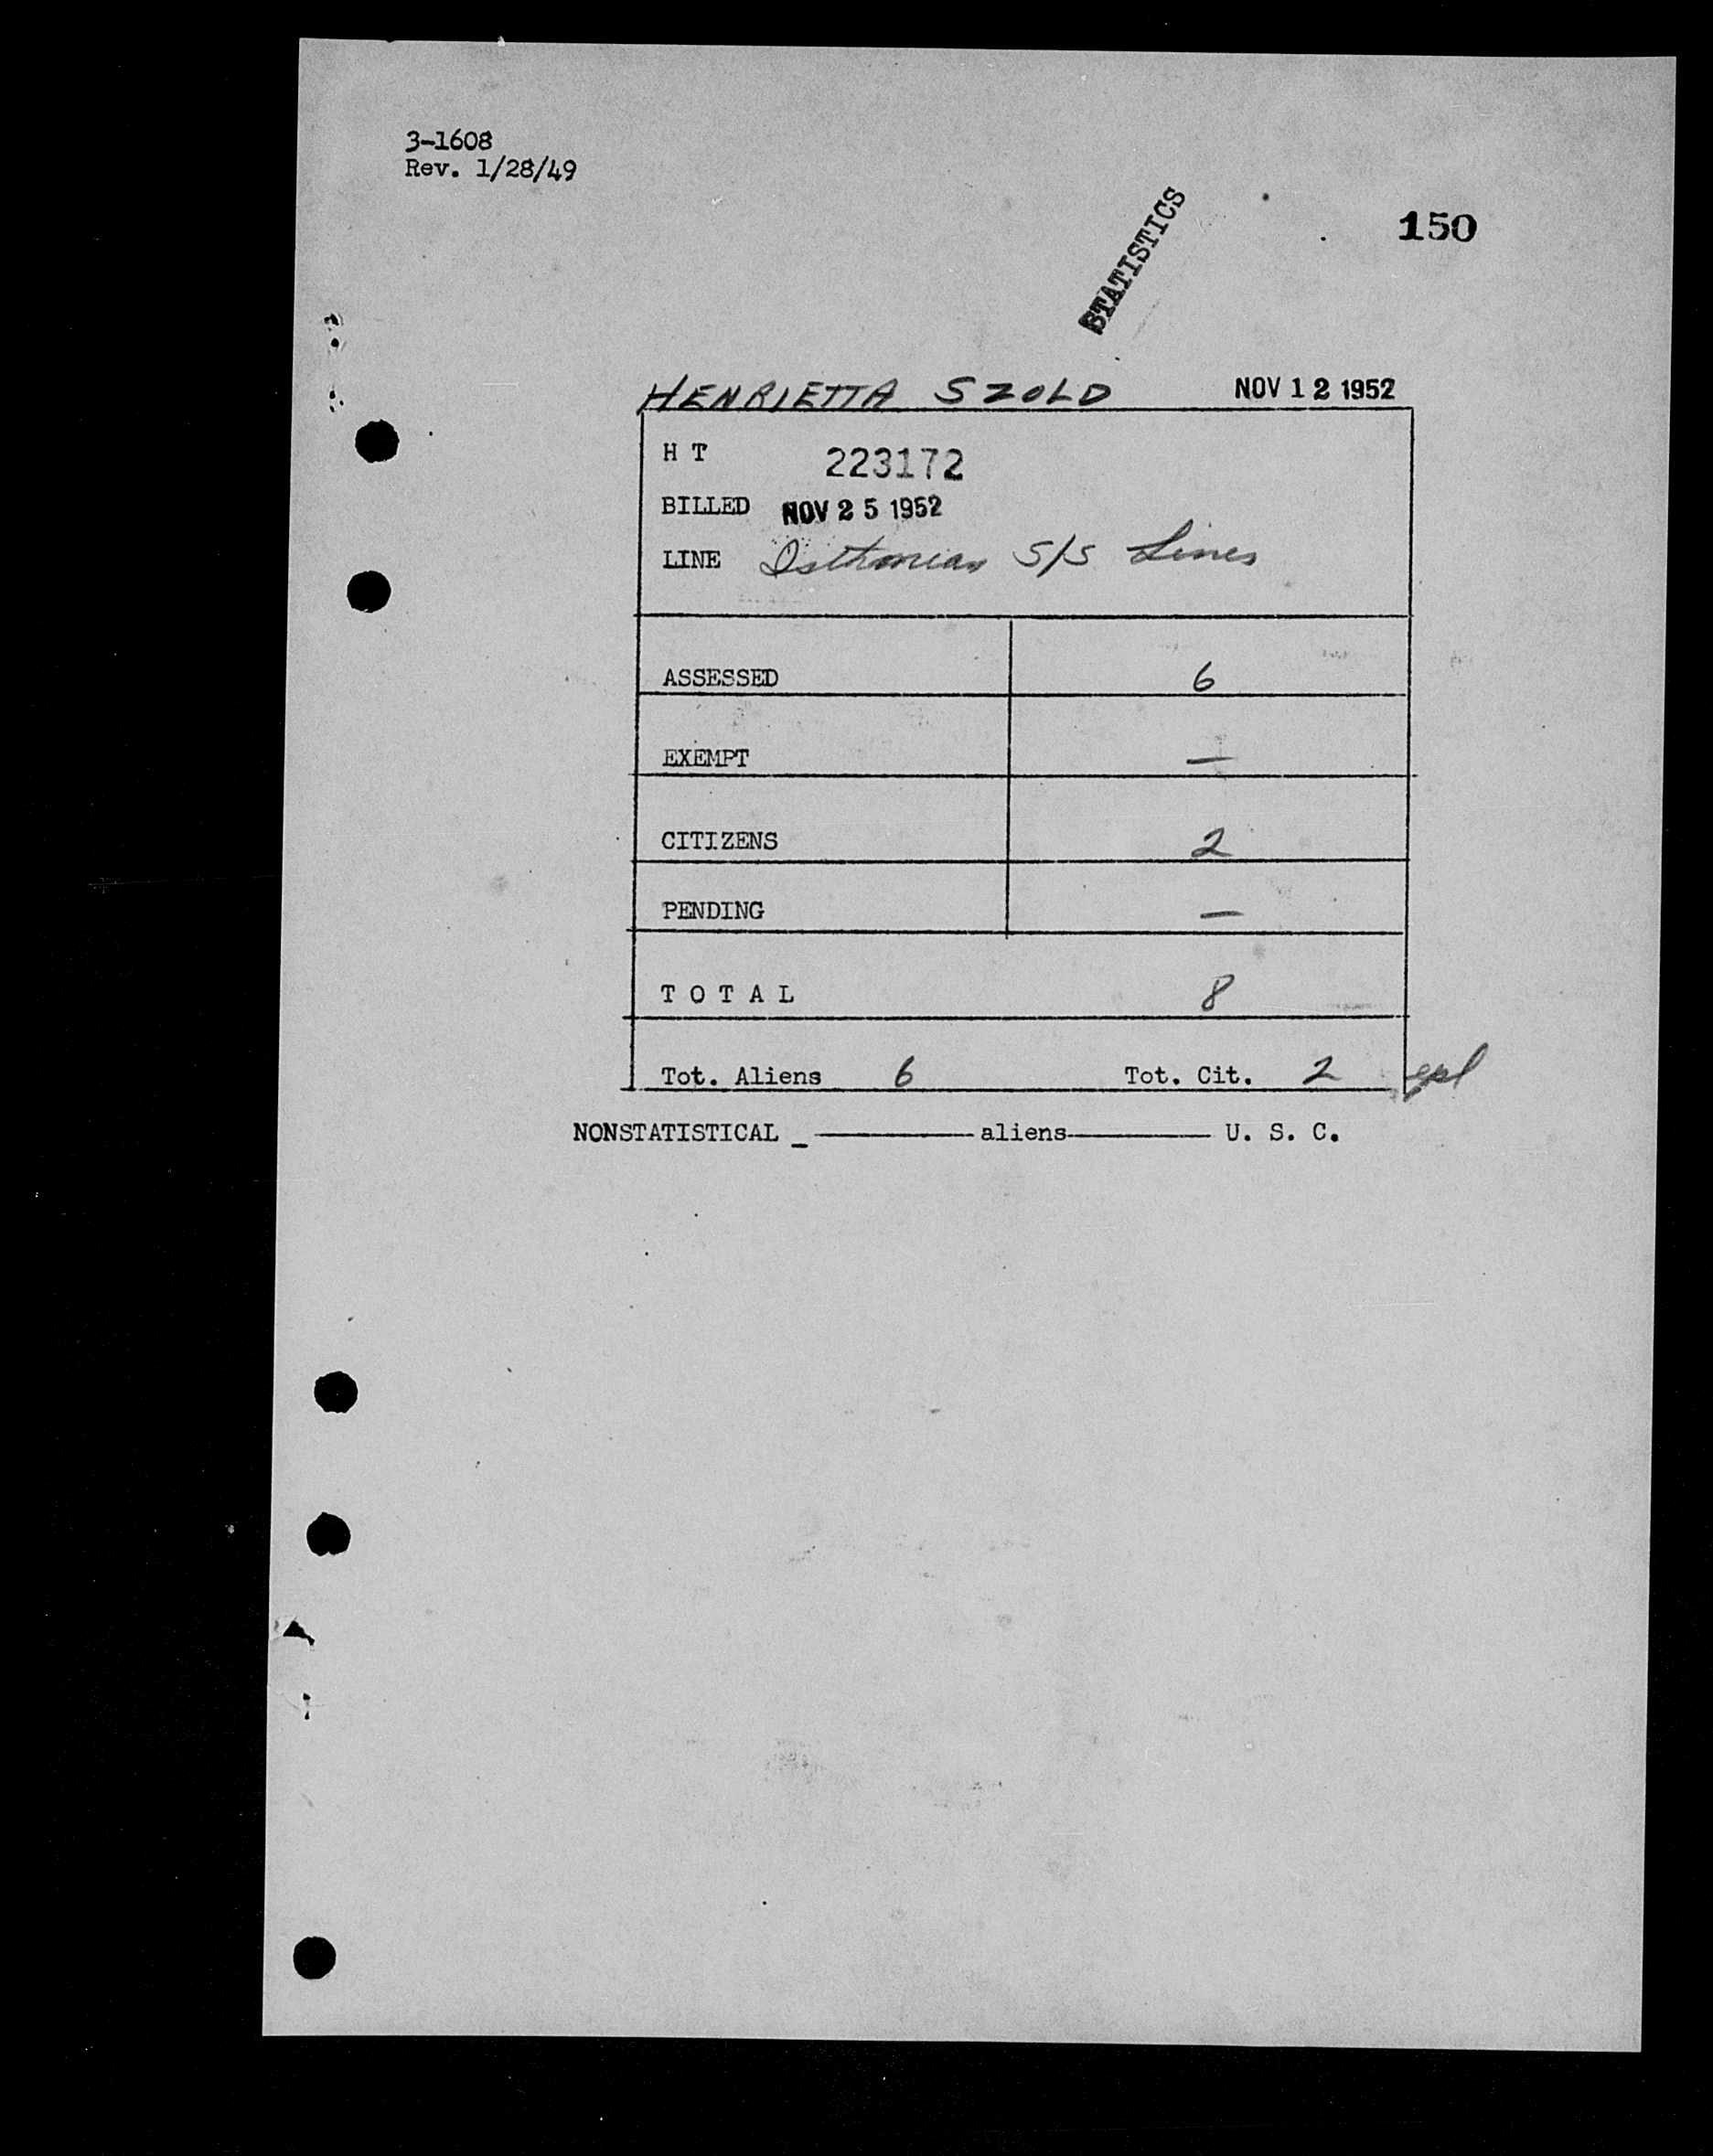 3-1608
Rev. 1/28/49
STATISTICS
150
HENRIETTA SZOLD NOV 12 1952
H T 223172
BILLED NOV 25 1952
LINE Isthmian S/S Lines
ASSESSED 6
EXEMPT —
CITIZENS 2
PENDING —
T O T A L 8
Tot. Aliens 6 Tot. Cit. 2
NONSTATISTICAL _ ———— aliens ———— U. S. C.